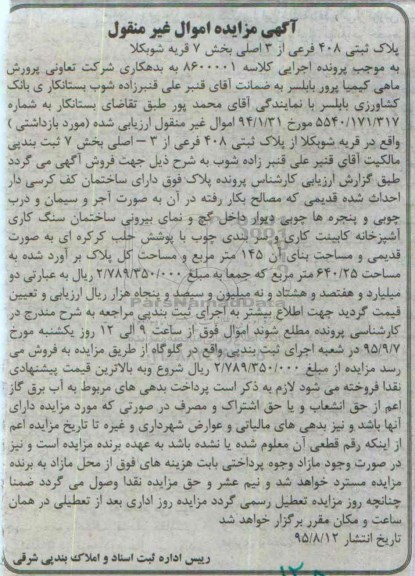 آگهی مزایده اموال غیر منقول
پلاک ثبتی ۴۰۸ فرعی از ۳ اصلی بخش ۷ قریه شوبکلا
به موجب پرونده اجرایی کلاسه ۸۶۰۰۰۰۱ به بدهکاری شرکت تعاونی پرورش
ماهی کیمیا پرور بابلسر به ضمانت آقای قنبر علی قنبرزاده شوب بستانکار ی بانک
کشاورزی بابلسر با نمایندگی آقای محمد پور طبق تقاضای بستانکار به شماره
۵۵۴۰/۱۷۱/۳۱۷ مورخ ۹۴/۱/۳۱ اموال غیر منقول ارزیابی شده (مورد بازداشتی )
واقع در قریه شوبکلا از پلاک ثبتی ۴۰۸ فرعی از ۳ – اصلی بخش ۷ ثبت بندپی
مالکیت آقای قنبر علی قنبر زاده شوب به شرح ذیل جهت فروش آگهی می گردد
طبق گزارش ارزیابی کارشناس پرونده پلاک فوق دارای ساختمان کف کرسی دار
احداث شده قدیمی که مصالح بکار رفته در آن به صورت آجر و سیمان و درب
چوبی و پنجره ها چوبی دیوار داخل گچ و نمای بیرونی ساختمان سنگ کاری
آشپزخانه کابینت کاری و سر بندی چوب با پوشش حلب کرکره ای به صورت
قدیمی و مساحت بنای آن ۱۴۵ متر مربع و مساحت کل پلاک بر آورد شده به
مساحت ۶۴۰/۲۵ متر مربع که جمعا به مبلغ ۲/۷۸۹/۳۵۰/۰۰۰ ریال به عبارتی دو
میلیارد و هفتصد و هشتاد و نه میلیون و سیصد و پنجاه هزار ریال ارزیابی و تعیین
قیمت گردید جهت اطلاع بیشتر به اجرای ثبت بندپی مراجعه به شرح مندرج در
کارشناسی پرونده مطلع شوند اموال فوق از ساعت ۹ الی ۱۲ روز یکشنبه مورخ
۹۵/۹/۷ در شعبه اجرای ثبت بندپی واقع در گلوگاه از طریق مزایده به فروش می
رسد مزایده از مبلغ ۲/۷۸۹/۳۵۰/۰۰۰ ریال شروع وبه بالاترین قیمت پیشنهادی
نقدا فروخته می شود لازم به ذکر است پرداخت بدهی های مربوط به آب برق گاز
اعم از حق انشعاب و یا حق اشتراک و مصرف در صورتی که مورد مزایده دارای
آنها باشد و نیز بدهی های مالیاتی و عوارض شهرداری و غیره تا تاریخ مزایده اعم
از اینکه رقم قطعی آن معلوم شده یا نشده باشد به عهده برنده مزایده است و نیز
در صورت وجود مازاد وجوه پرداختی بابت هزینه های فوق از محل مازاد به برنده
مزایده مسترد خواهد شد و نیم عشر و حق مزایده نقدا وصول می گردد ضمنا
چنانچه روز مزایده تعطیل رسمی گردد مزایده روز اداری بعد از تعطیلی در همان
ساعت و مکان مقرر برگزار خواهد شد
تاریخ انتشار ۹۵/۸/۱۲
رییس اداره ثبت اسناد و املاک بندپی شرقی